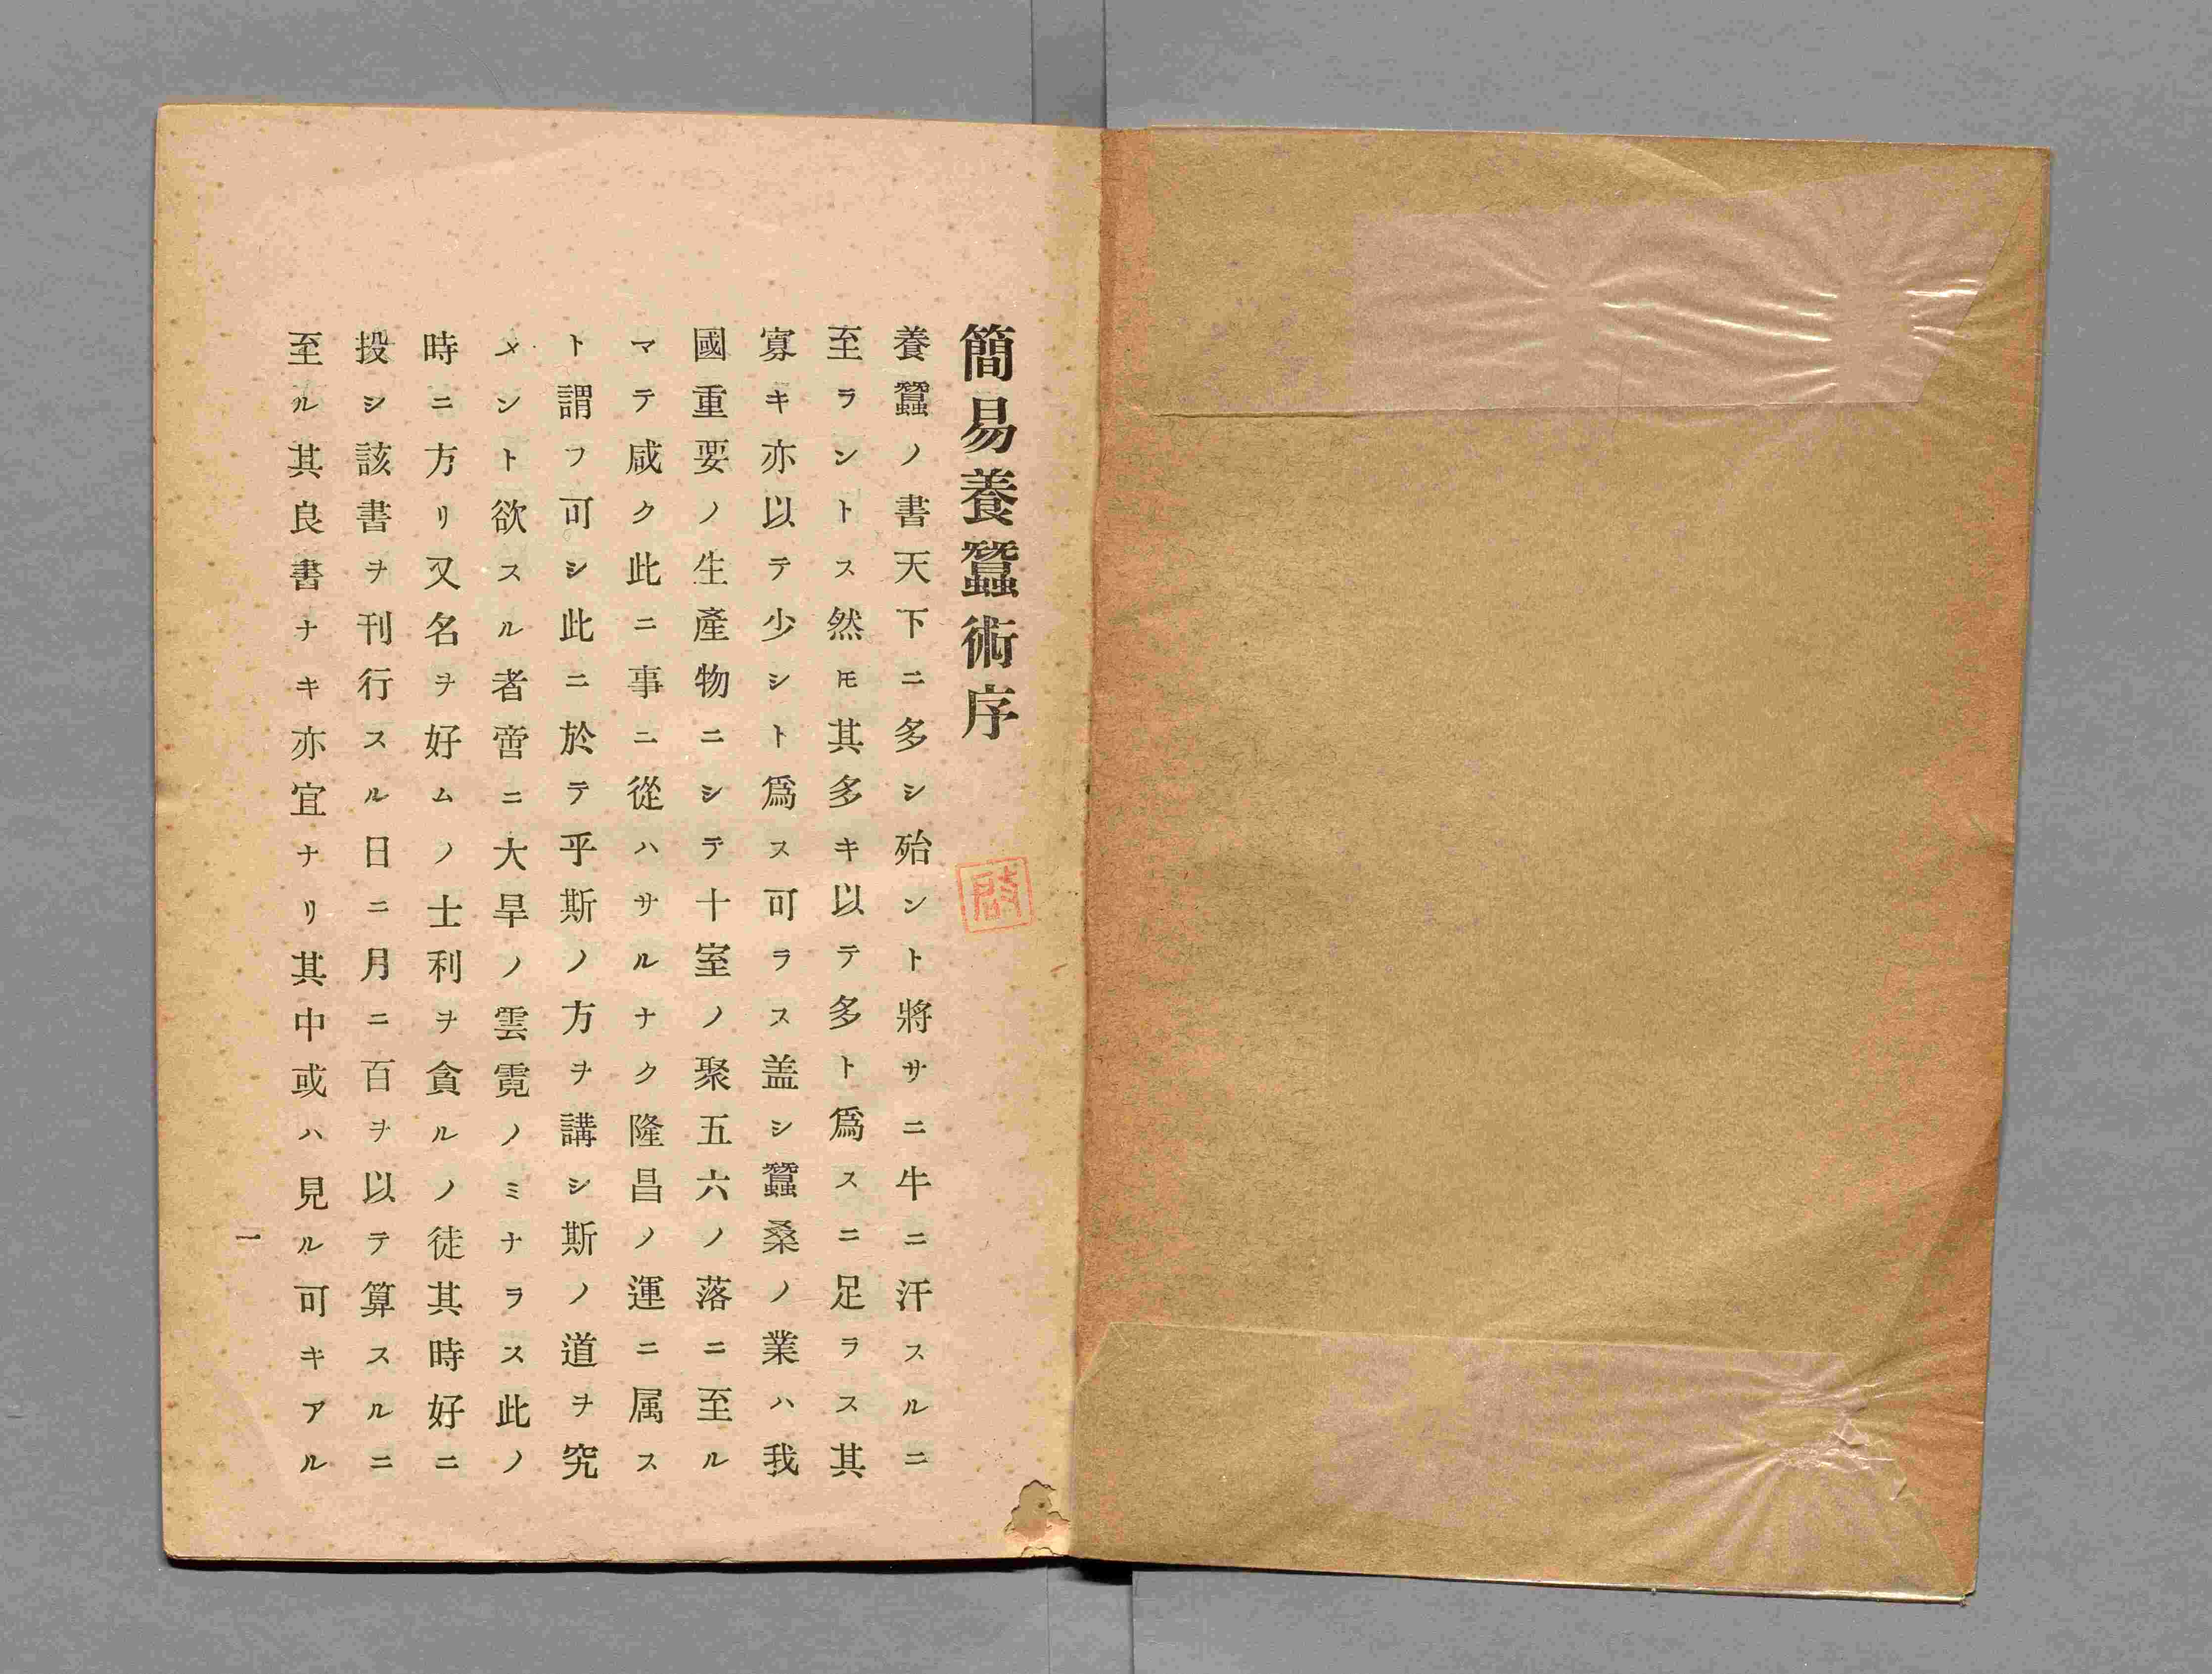 簡易養蠶術序
養蠶ノ書天下ニ多シ殆ント將サニ牛ニ汗スルニ
至ラントス然𪜈其多キ以テ多ト爲スニ足ラス其
寡キ亦以テ少シト爲ス可ラス盖シ蠶桑ノ業ハ我
國重要ノ生產物ニシテ十室ノ聚五六ノ落ニ至ル
マテ咸ク此ニ事ニ從ハサルナク隆昌ノ運ニ属ス
ト謂フ可シ此ニ於テ乎斯ノ方ヲ講シ斯ノ道ヲ究
メント欲スル者啻ニ大旱ノ雲霓ノミナラス此ノ
時ニ方リ又名ヲ好ムノ士利ヲ貪ルノ徒其時好ニ
投シ該書ヲ刊行スル日ニ月ニ百ヲ以テ算スルニ
至ル其良書ナキ亦宜ナリ其中或ハ見ル可キアル
一
啓